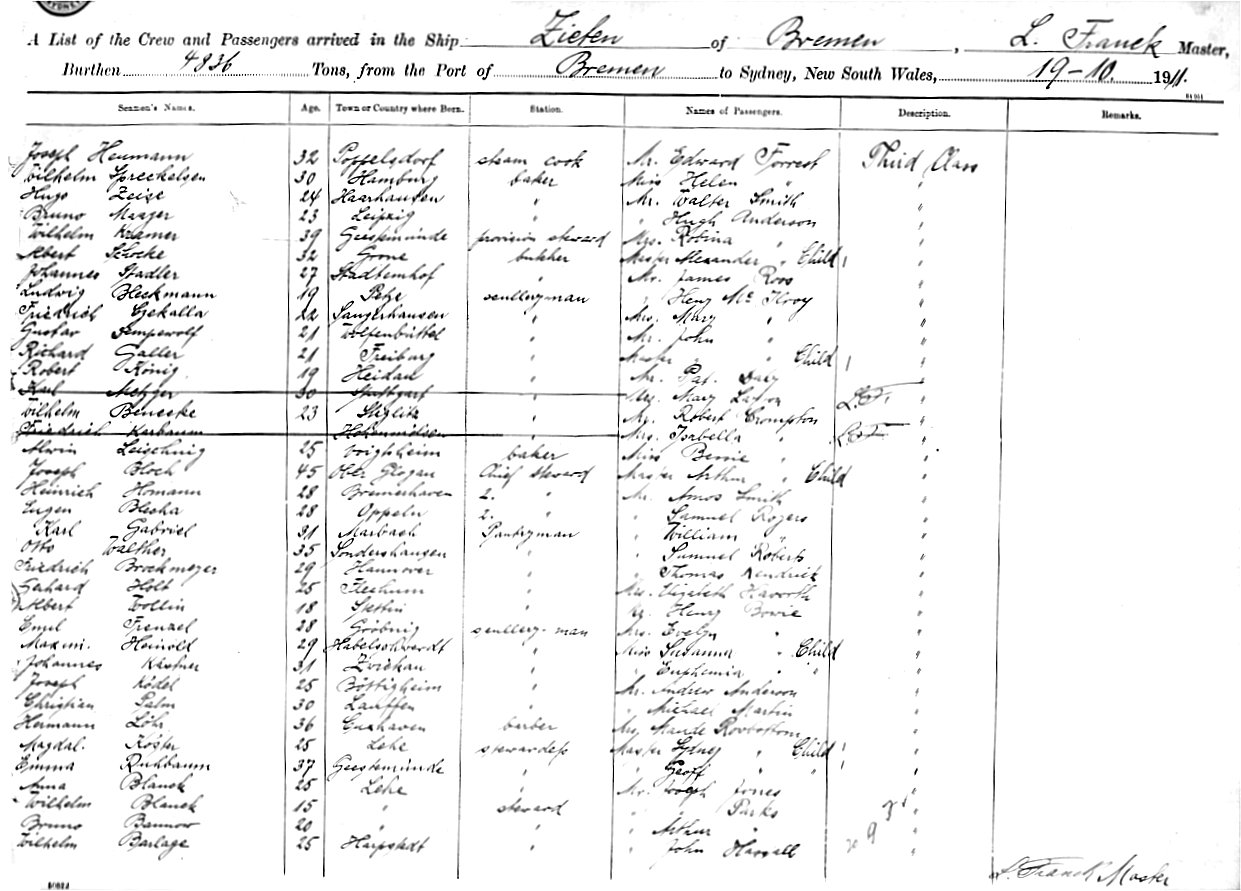 SYDNEY
A List of the Crew and Passengers arrived in the Ship Zieten of Bremen, L. Franck Master,
Burthen 4836 Tons, from the Port of Bremen to Sydney, New South Wales, 19-10. 1911.
Seamen's Names. Age. Town or Country where Born. Station. Names of Passengers. Description. Remarks.
Joseph Heumann 32 Poppelsdorf steam cook Mr. Edward Forrest Third Class
Wilhelm Spreckelsen 30 Hamburg baker Miss Helen " "
Hugo Zeise 24 Haarhausen " Mr. Walter Smith "
Bruno 23 Leipzig " " Hugh Anderson "
Wilhelm Kramer 39 Geestemünde provision steward Mrs. Robina " "
Albert 32 Grone butcher Master Alexander " Child 1 "
Johannes Stadler 27 Stadtemhof " Mr. James Ross "
Ludwig Heckmann 19 Peize scullery man " Henry Mc Ilroy "
Friedrich 22 Sangerhausen " Mrs. Mary " "
Gustav Sempewolf 21 Wolfenbüttel " Mr. John " "
Richard Galler 21 Freiburg " Master " " Child 1 "
Robert König 19 Heidau " Mr. Pat. Daly "
Karl Metzger 30 Stuttgart " Mary L.F. "
Wilhelm Benecke 23 Steglitz " Mr. Robert Crompton "
Friedrich Karbaum Hohenmölsen " Mrs. Isabella " L.F. "
Alwin Leischnig 25 Voigtsheim baker Miss Bessie " "
Joseph Bloch 45 Ober Glogau Chief steward Master Arthur " Child "
Heinrich Homann 28 Bremerhaven 2. " Mr. Amos Smith "
Eugen Blecha 28 Oppeln 2. " " Samuel Rogers "
Karl Gabriel 31 Marbach Pantryman " William " "
Otto Walther 35 Sondershausen " " Samuel Roberts "
Friedrich Brockmeyer 29 Hannover " " Thomas Kendrick "
Gerhard Holt 25 Flechum " Mrs. Elizabeth Haworth "
Albert Wollin 18 Stettin " Mr. Henry Bowie "
Emil Frenzel 28 Gröbnig scullery-man Mrs. Evelyn " "
Maxim. Heinold 29 Habelschwerdt " Miss Susanna " Child "
Johannes Kästner 31 Zwickau " " Euphemia " " "
Joseph Ködel 25 Böttigheim " Mr. Andrew Anderson "
Christian Palm 30 Lauffen " " Michael Martin "
Hermann Löhr 36 Cuxhaven barber Mrs. Maude Rowbottom "
Magdal. Köster 25 Lehe stewardess Master Sydney " Child 1 "
Emma Ruhbaum 37 Geestemünde " " Geoff " " 1 "
Anna Blanck 25 Lehe " Mr. Joseph Jones "
Wilhelm Blanck 15 " steward " " Parks "
Bruno Bannow 20 " " " Arthur " "
Wilhelm Barlage 25 Harpstedt " " John Hassall "
L. Franck Master